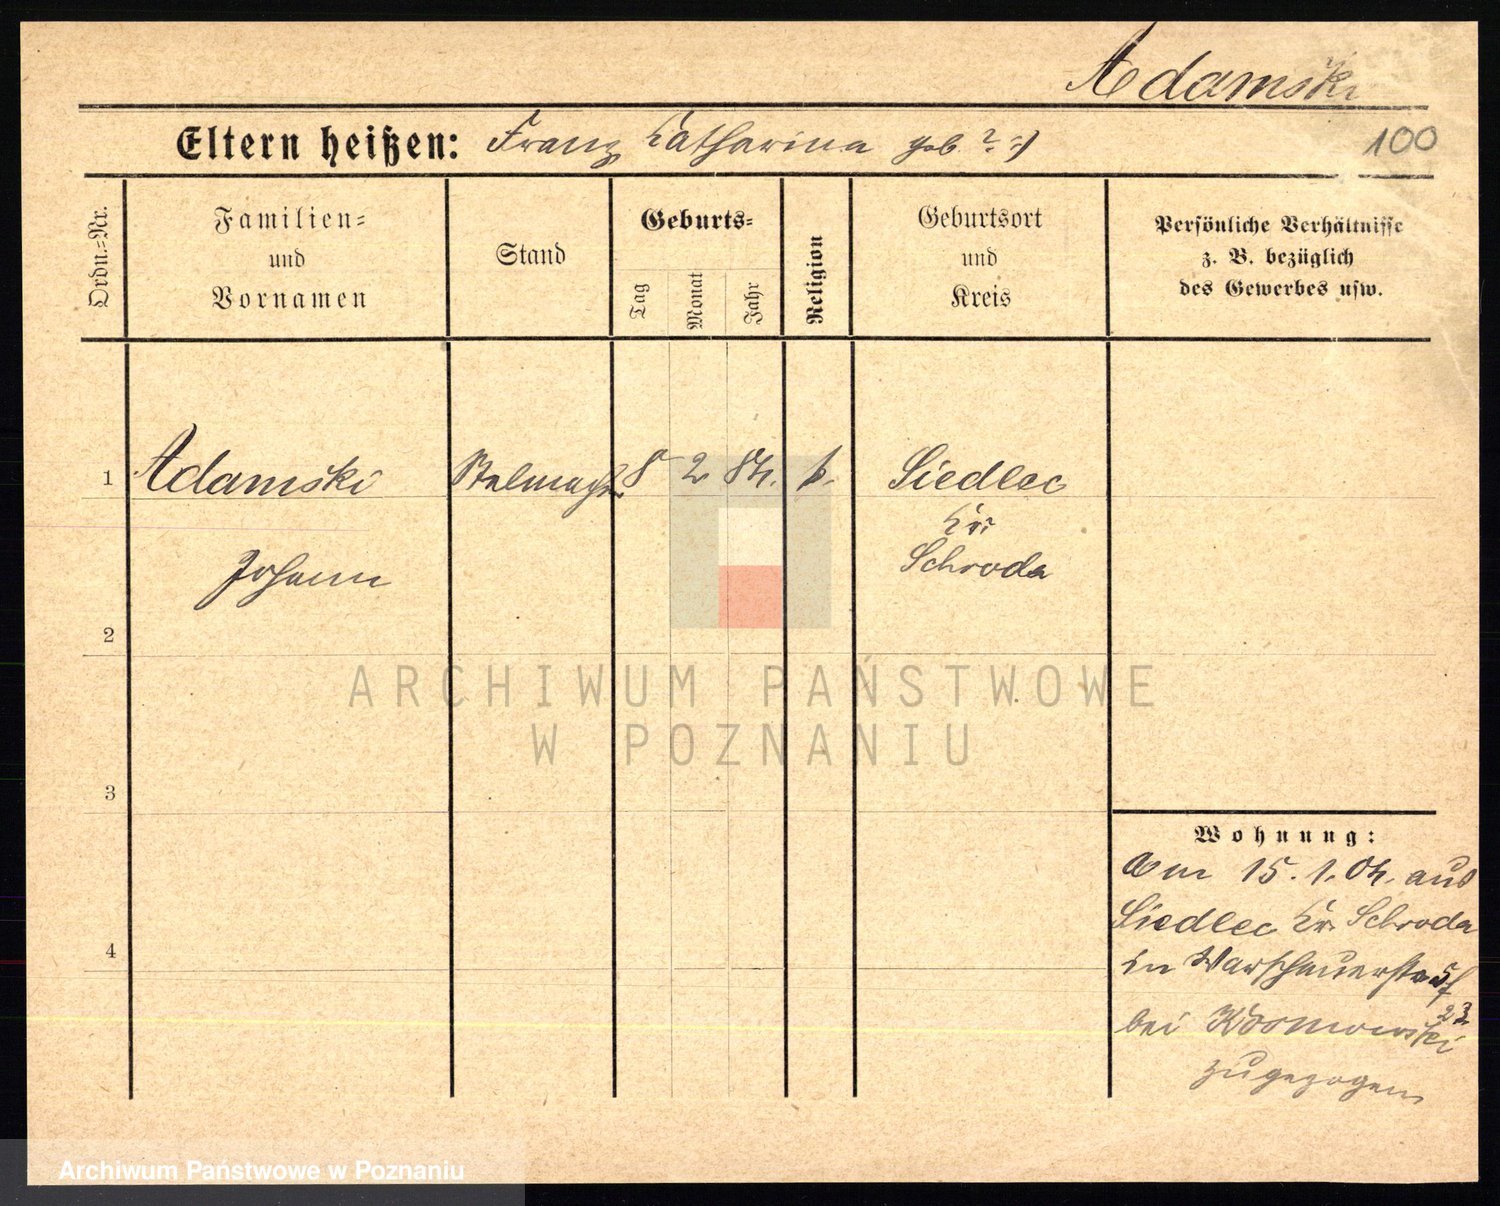 Adamski
Eltern heißen: Franz Katharina geb. ? :)
100
Ordn.=Nr.
Familien=
und
Vornamen
Stand
Geburts=
Tag
Monat
Jahr
Religion
Geburtsort
und
Kreis
Persönliche Verhältnisse
z. B. bezüglich
des Gewerbes usw.
1 Adamski Stelmacher 8 2 84. k. Siedlec
Kr.
Johann Schroda
2
3
4
Wohnung:
Am 15. 1. 04. aus
Siedlec Kr. Schroda
in Warschauerstr.
23
bei
zugezogen
ARCHIWUM PAŃSTWOWE
W POZNANIU
Archiwum Państwowe w Poznaniu